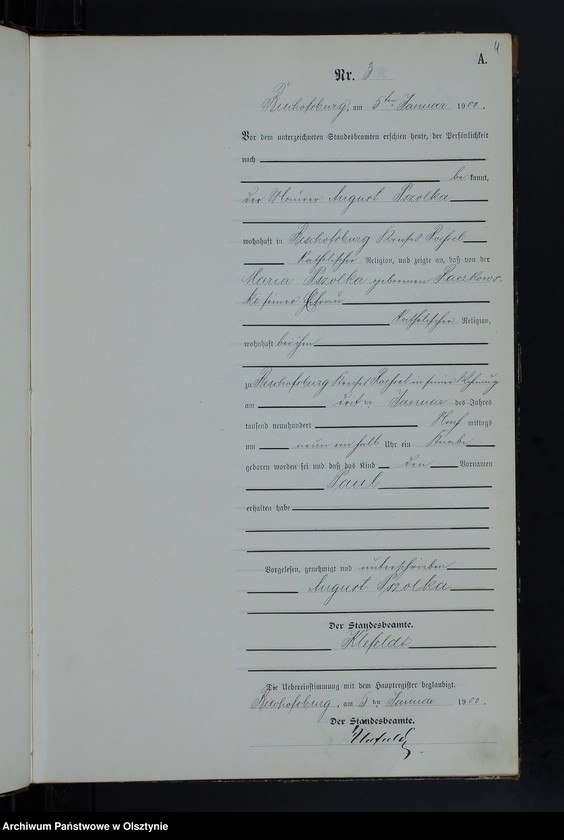 4
A.
Nr. 3
Bischofsburg, am 5ten Januar 1900.
Vor dem unterzeichneten Standesbeamten erschien heute, der Persönlichkeit
nach
be kannt,
der Maurer August Pszolka
wohnhaft in Bischofsburg Kreises Roessel
katholischer Religion, und zeigte an, daß von der
Maria Pszolka geborenen Paczkows-
ki seiner Ehefrau
katholischer Religion,
wohnhaft bei ihm
zu Bischofsburg Kreises Roessel in seiner Wohnung
am Januar des Jahres
tausend neunhundert Nach mittags
um neun ein halb Uhr ein Knabe
geboren worden sei und daß das Kind den Vornamen
Paul
erhalten habe
Vorgelesen, genehmigt und unterschrieben
August Pszolka
Der Standesbeamte.
Klefeldt
Die Uebereinstimmung mit dem Hauptregister beglaubigt.
Bischofsburg, am 5ten Januar 1900.
Der Standesbeamte.
Archiwum Państwowe w Olsztynie